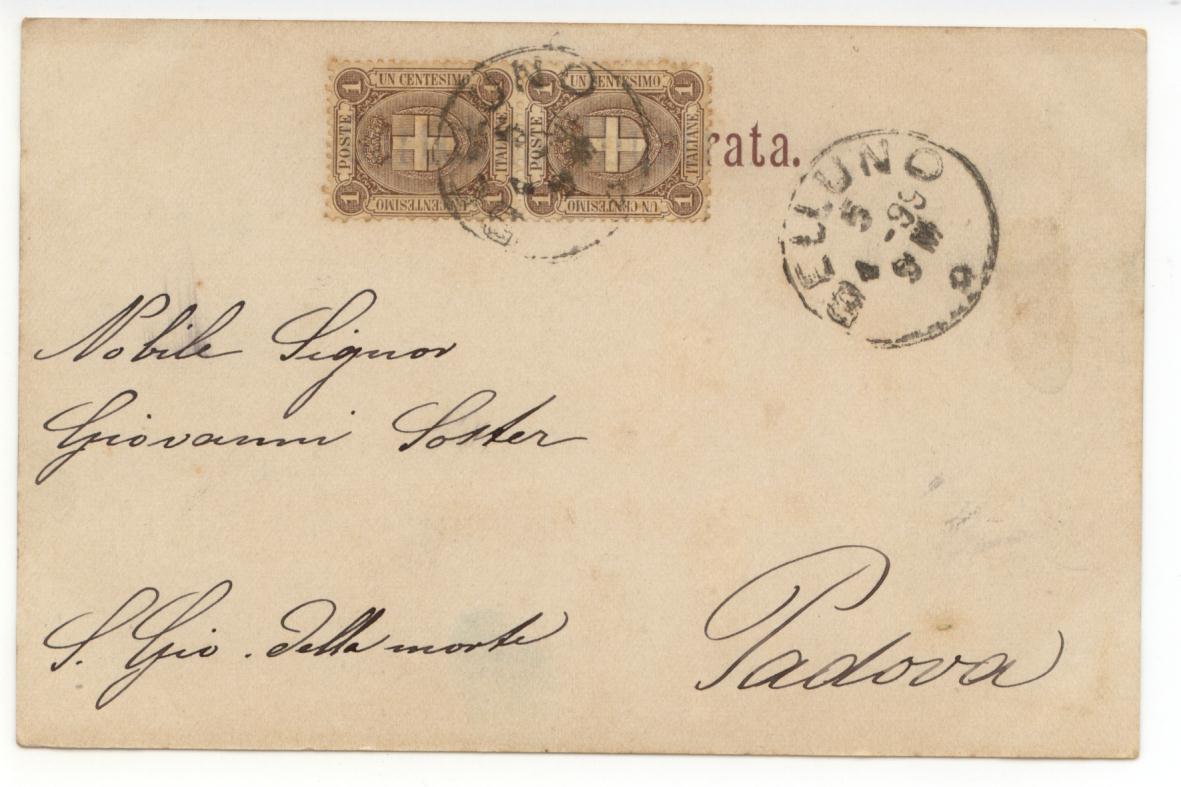 1 UN CENTESIMO 1
POSTE ITALIANE
1 UN CENTESIMO 1
1 UN CENTESIMO 1
POSTE ITALIANE
1 UN CENTESIMO 1
UNO
B
rata.
BELLUNO
5
4 -99
8 M
Nobile Signor
Giovanni Soster
S. Gio. della morte
Padova